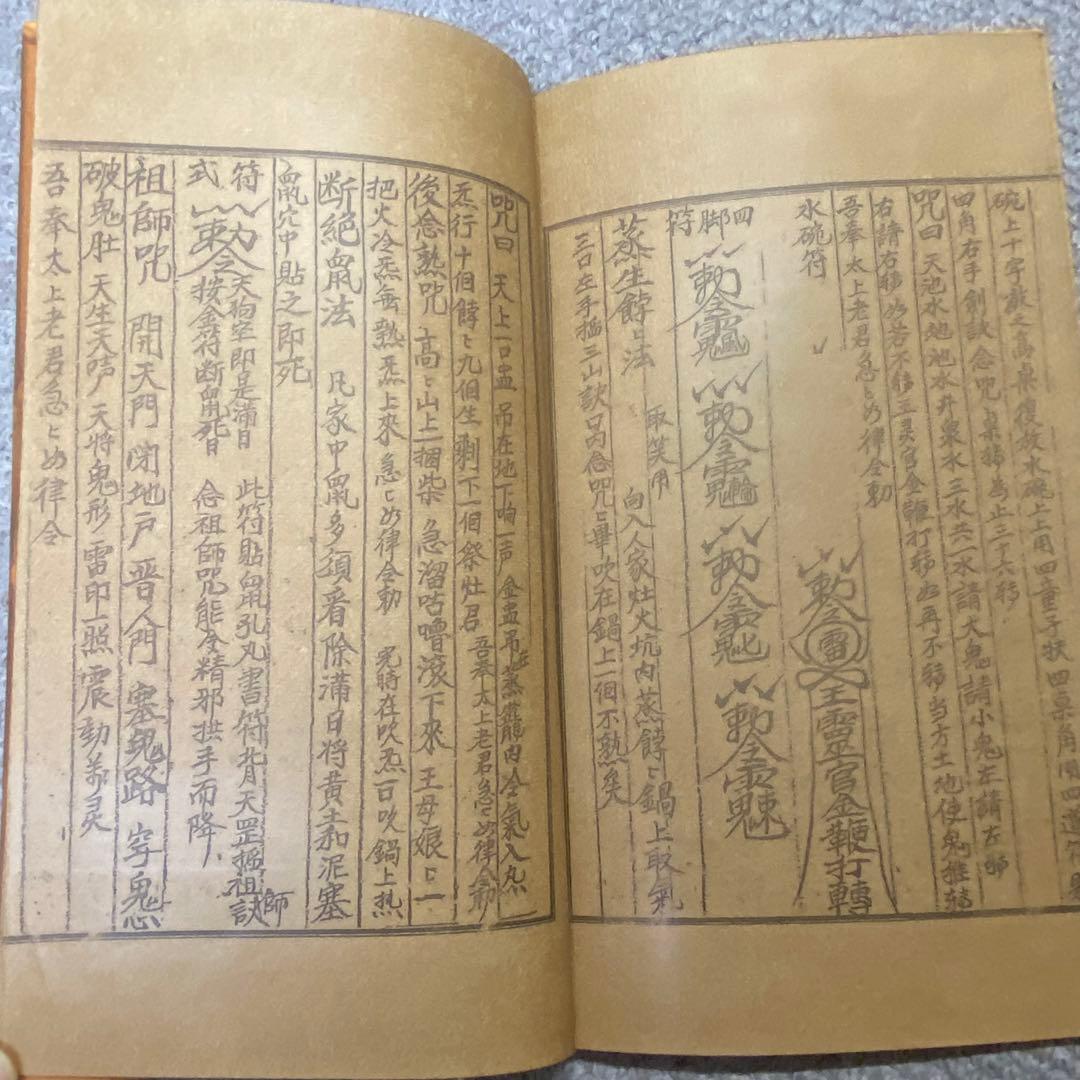 碗上十字放之高桌後放水碗上用四童子扶四桌角用四道符
四角右手劍訣念咒桌移為止三十六移
咒曰 天池水地池水井泉水三水共一水請大鬼請小鬼左請左移
右請右移如若不移王灵官金鞭打移如再不移当方土地使鬼推移
吾奉太上老君急〻如律令勅
水碗符
勅令雷王靈官金鞭打轉
四脚符
勅令 勅令 勅令 勅令
蒸生餑〻法 取笑用 向人家灶火坑内蒸餑〻鍋上取氣
三口左手掐三山訣口内念咒〻畢吹在鍋上一個不熟矣
咒曰 天上一口盅吊在地下响一声金盅吊在蒸籠内冷氣入
烝行十個餑〻九個生剩下一個祭灶君 吾奉太上老君急〻如律令勅
後念熱咒 高〻山上一捆柴急溜咕嚕滚下來王母娘〻一
把火冷炁無熱炁上來急〻如律令勅 完時在吹炁一口吹鍋上热
断絕鼠法 凡家中鼠多須看除滿日将黄土和泥塞
鼠穴中貼之即死
符式 勅令 天狗空即是滿日 按金符断鼠死日 此符貼鼠孔丸書符背天罡掐祖師訣 念祖師咒能令精邪拱手而降
祖師咒 開天門闭地户 晋人門 塞鬼路 穿鬼
破鬼肚 天生天 天将鬼形雷印一照震動 灵
吾奉太上老君急〻如律令